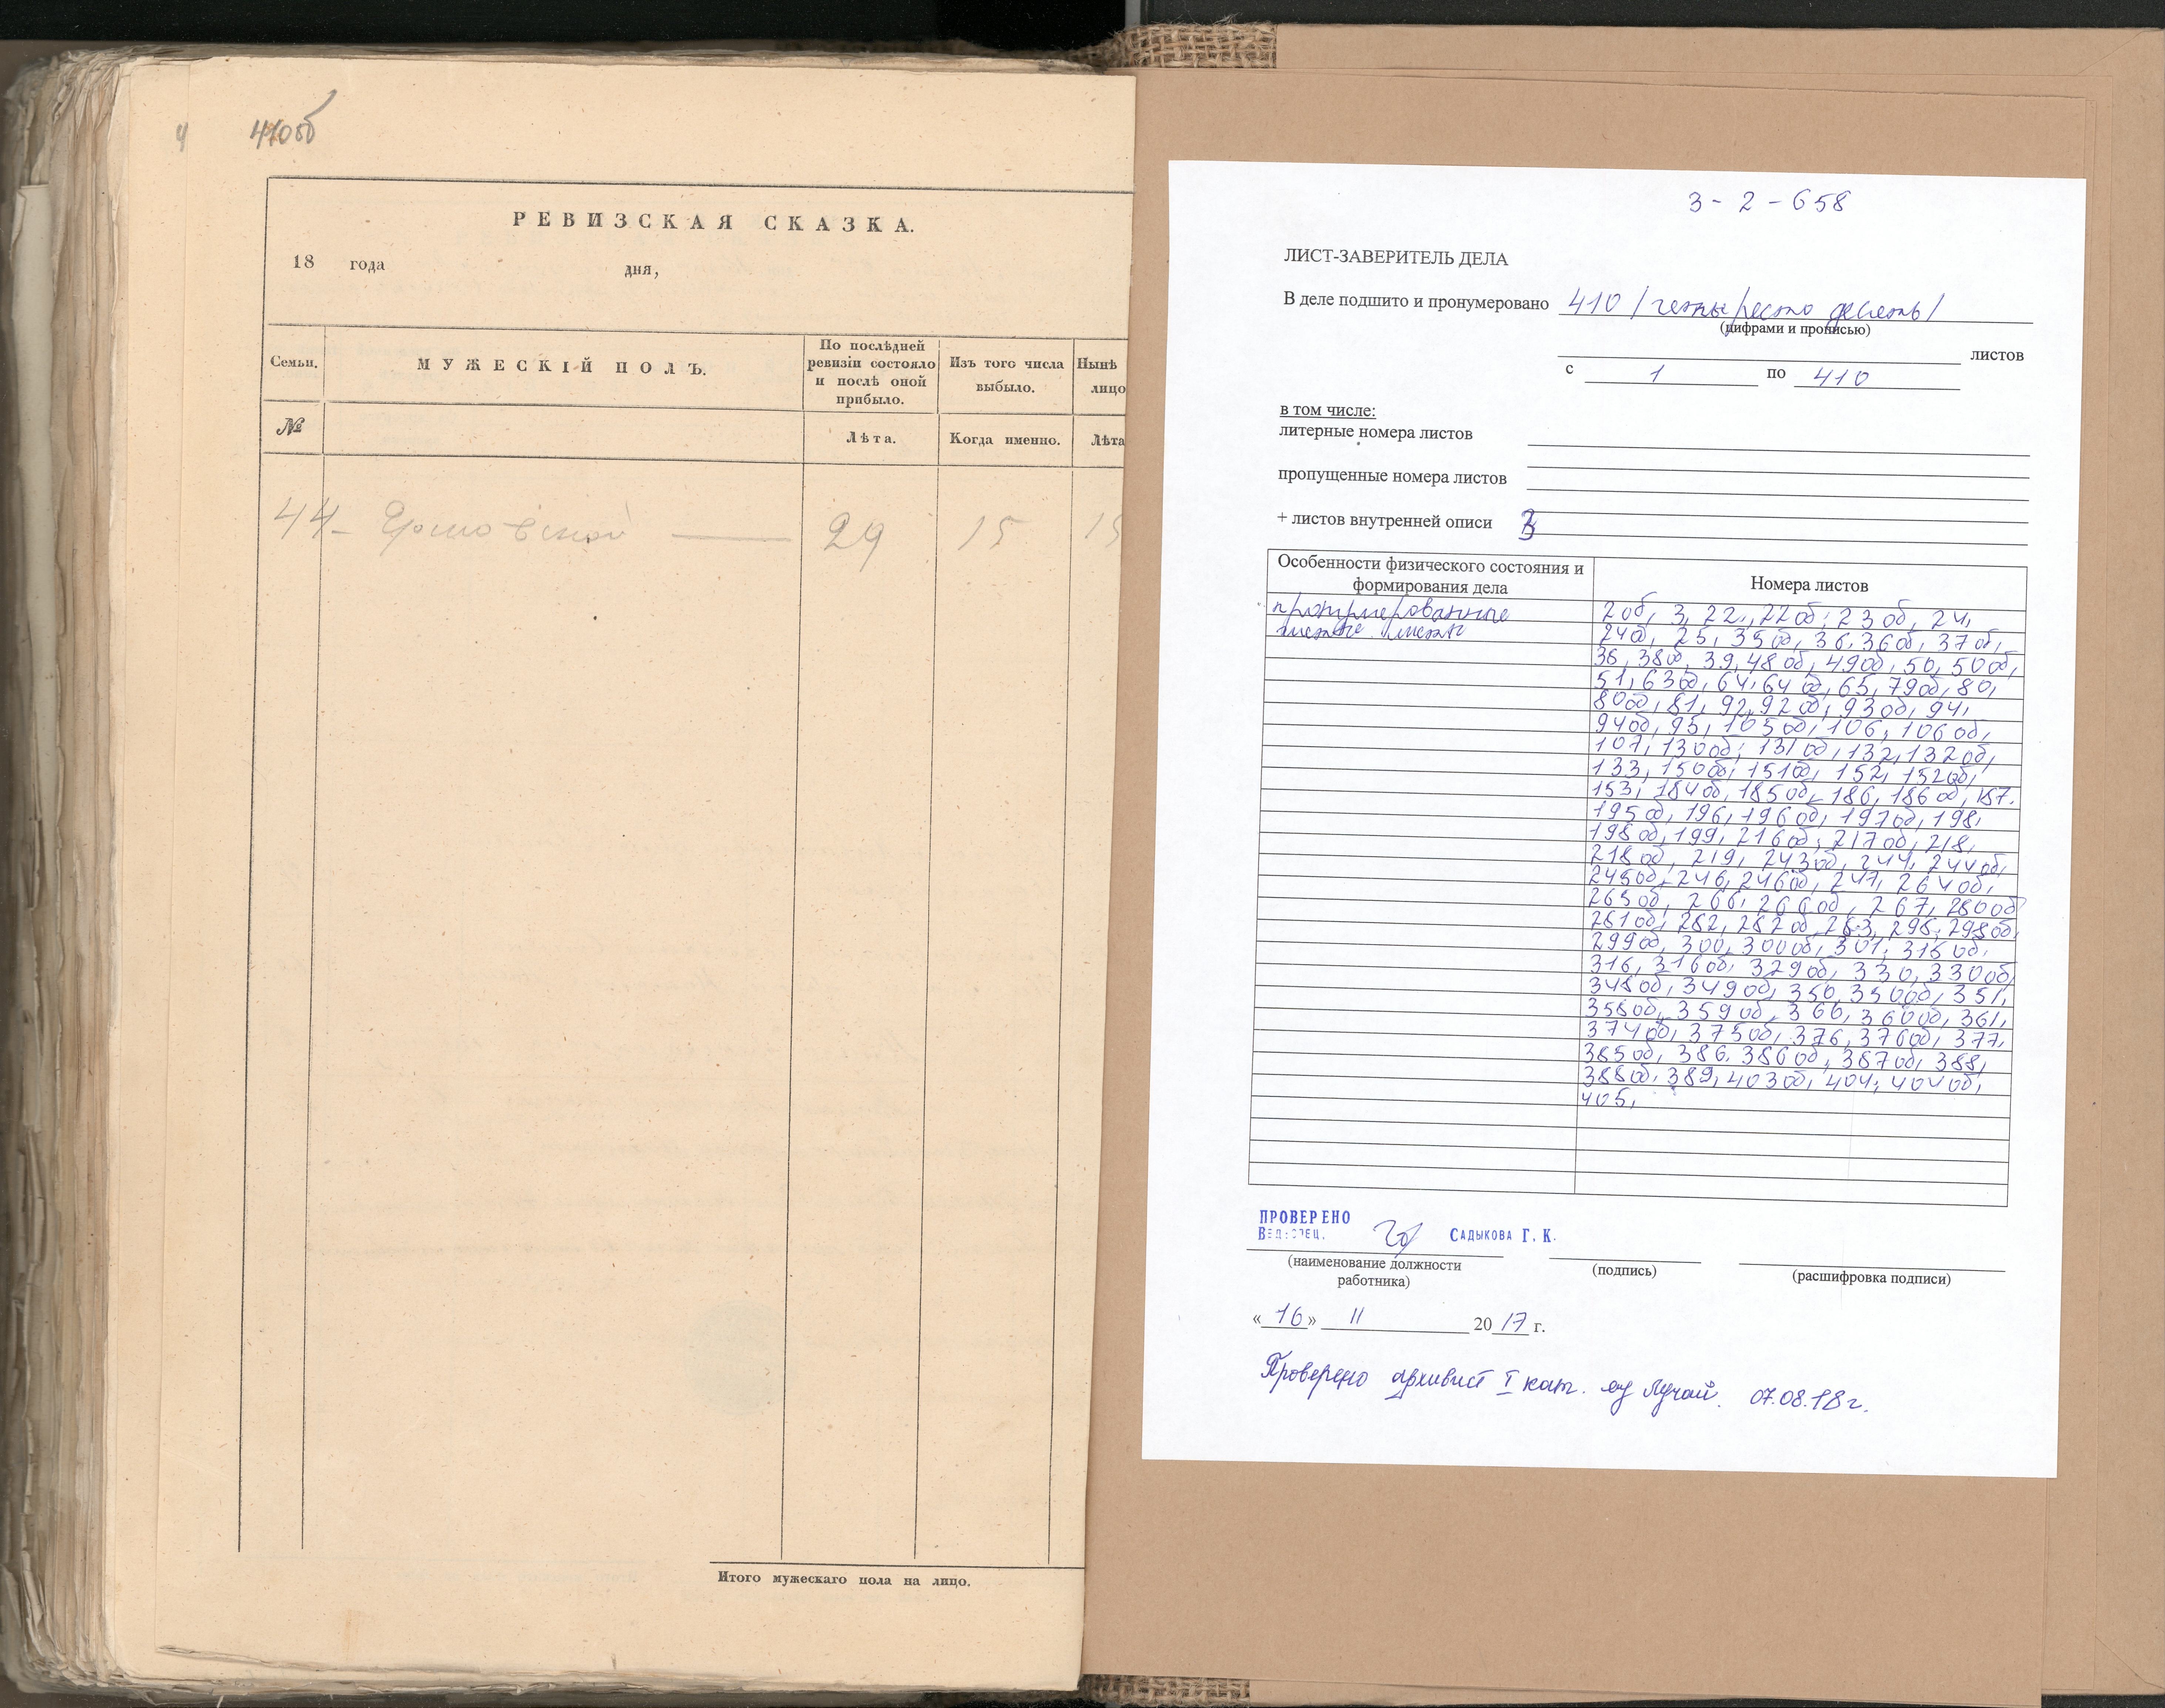 410об
РЕВИЗСКАЯ СКАЗКА.
18 года дня,
Семьи.
МУЖЕСКІЙ ПОЛЪ.
По послѣдней ревизіи состояло и послѣ оной прибыло.
Изъ того числа выбыло.
Нынѣ лицо
№
Лѣта.
Когда именно.
Лѣта
44 - 29 15 15
Итого мужескаго пола на лицо.
3 - 2 - 658
ЛИСТ-ЗАВЕРИТЕЛЬ ДЕЛА
В деле подшито и пронумеровано 410 /четыреста десять/
(цифрами и прописью)
листов
с 1 по 410
в том числе:
литерные номера листов
пропущенные номера листов
+ листов внутренней описи 3
Особенности физического состояния и формирования дела
Номера листов
пронумерованные
чистые листы
2об, 3, 22, 22об, 23об, 24,
24об, 25, 35об, 36, 36об, 37об,
38, 38об, 39, 48об, 49об, 50, 50об,
51, 63об, 64, 64об, 65, 79об, 80,
80об, 81, 92, 92об, 93об, 94,
94об, 95, 105об, 106, 106об,
107, 130об, 131об, 132, 132об,
133, 150об, 151об, 152, 152об,
153, 184об, 185об, 186, 186об, 187.
195об, 196, 196об, 197об, 198,
198об, 199, 216об, 217об, 218,
218об, 219, 243об, 244, 244об,
245об, 246, 246об, 247, 264об,
265об, 266, 266об, 267, 280об
281об, 282, 282об, 283, 298, 298об,
299об, 300, 300об, 301, 315об,
316, 316об, 329об, 330, 330об,
348об, 349об, 350, 350об, 351,
358об, 359об, 360, 360об, 361,
374об, 375об, 376, 376об, 377,
385об, 386, 386об, 387об, 388,
388об, 389, 403об, 404, 404об,
405,
ПРОВЕРЕНО
ВЕД.СПЕЦ. САДЫКОВА Г. К.
(наименование должности работника)
(подпись)
(расшифровка подписи)
«16» 11 2017 г.
Проверено архивист I кат. Лучай. 07.08.18г.